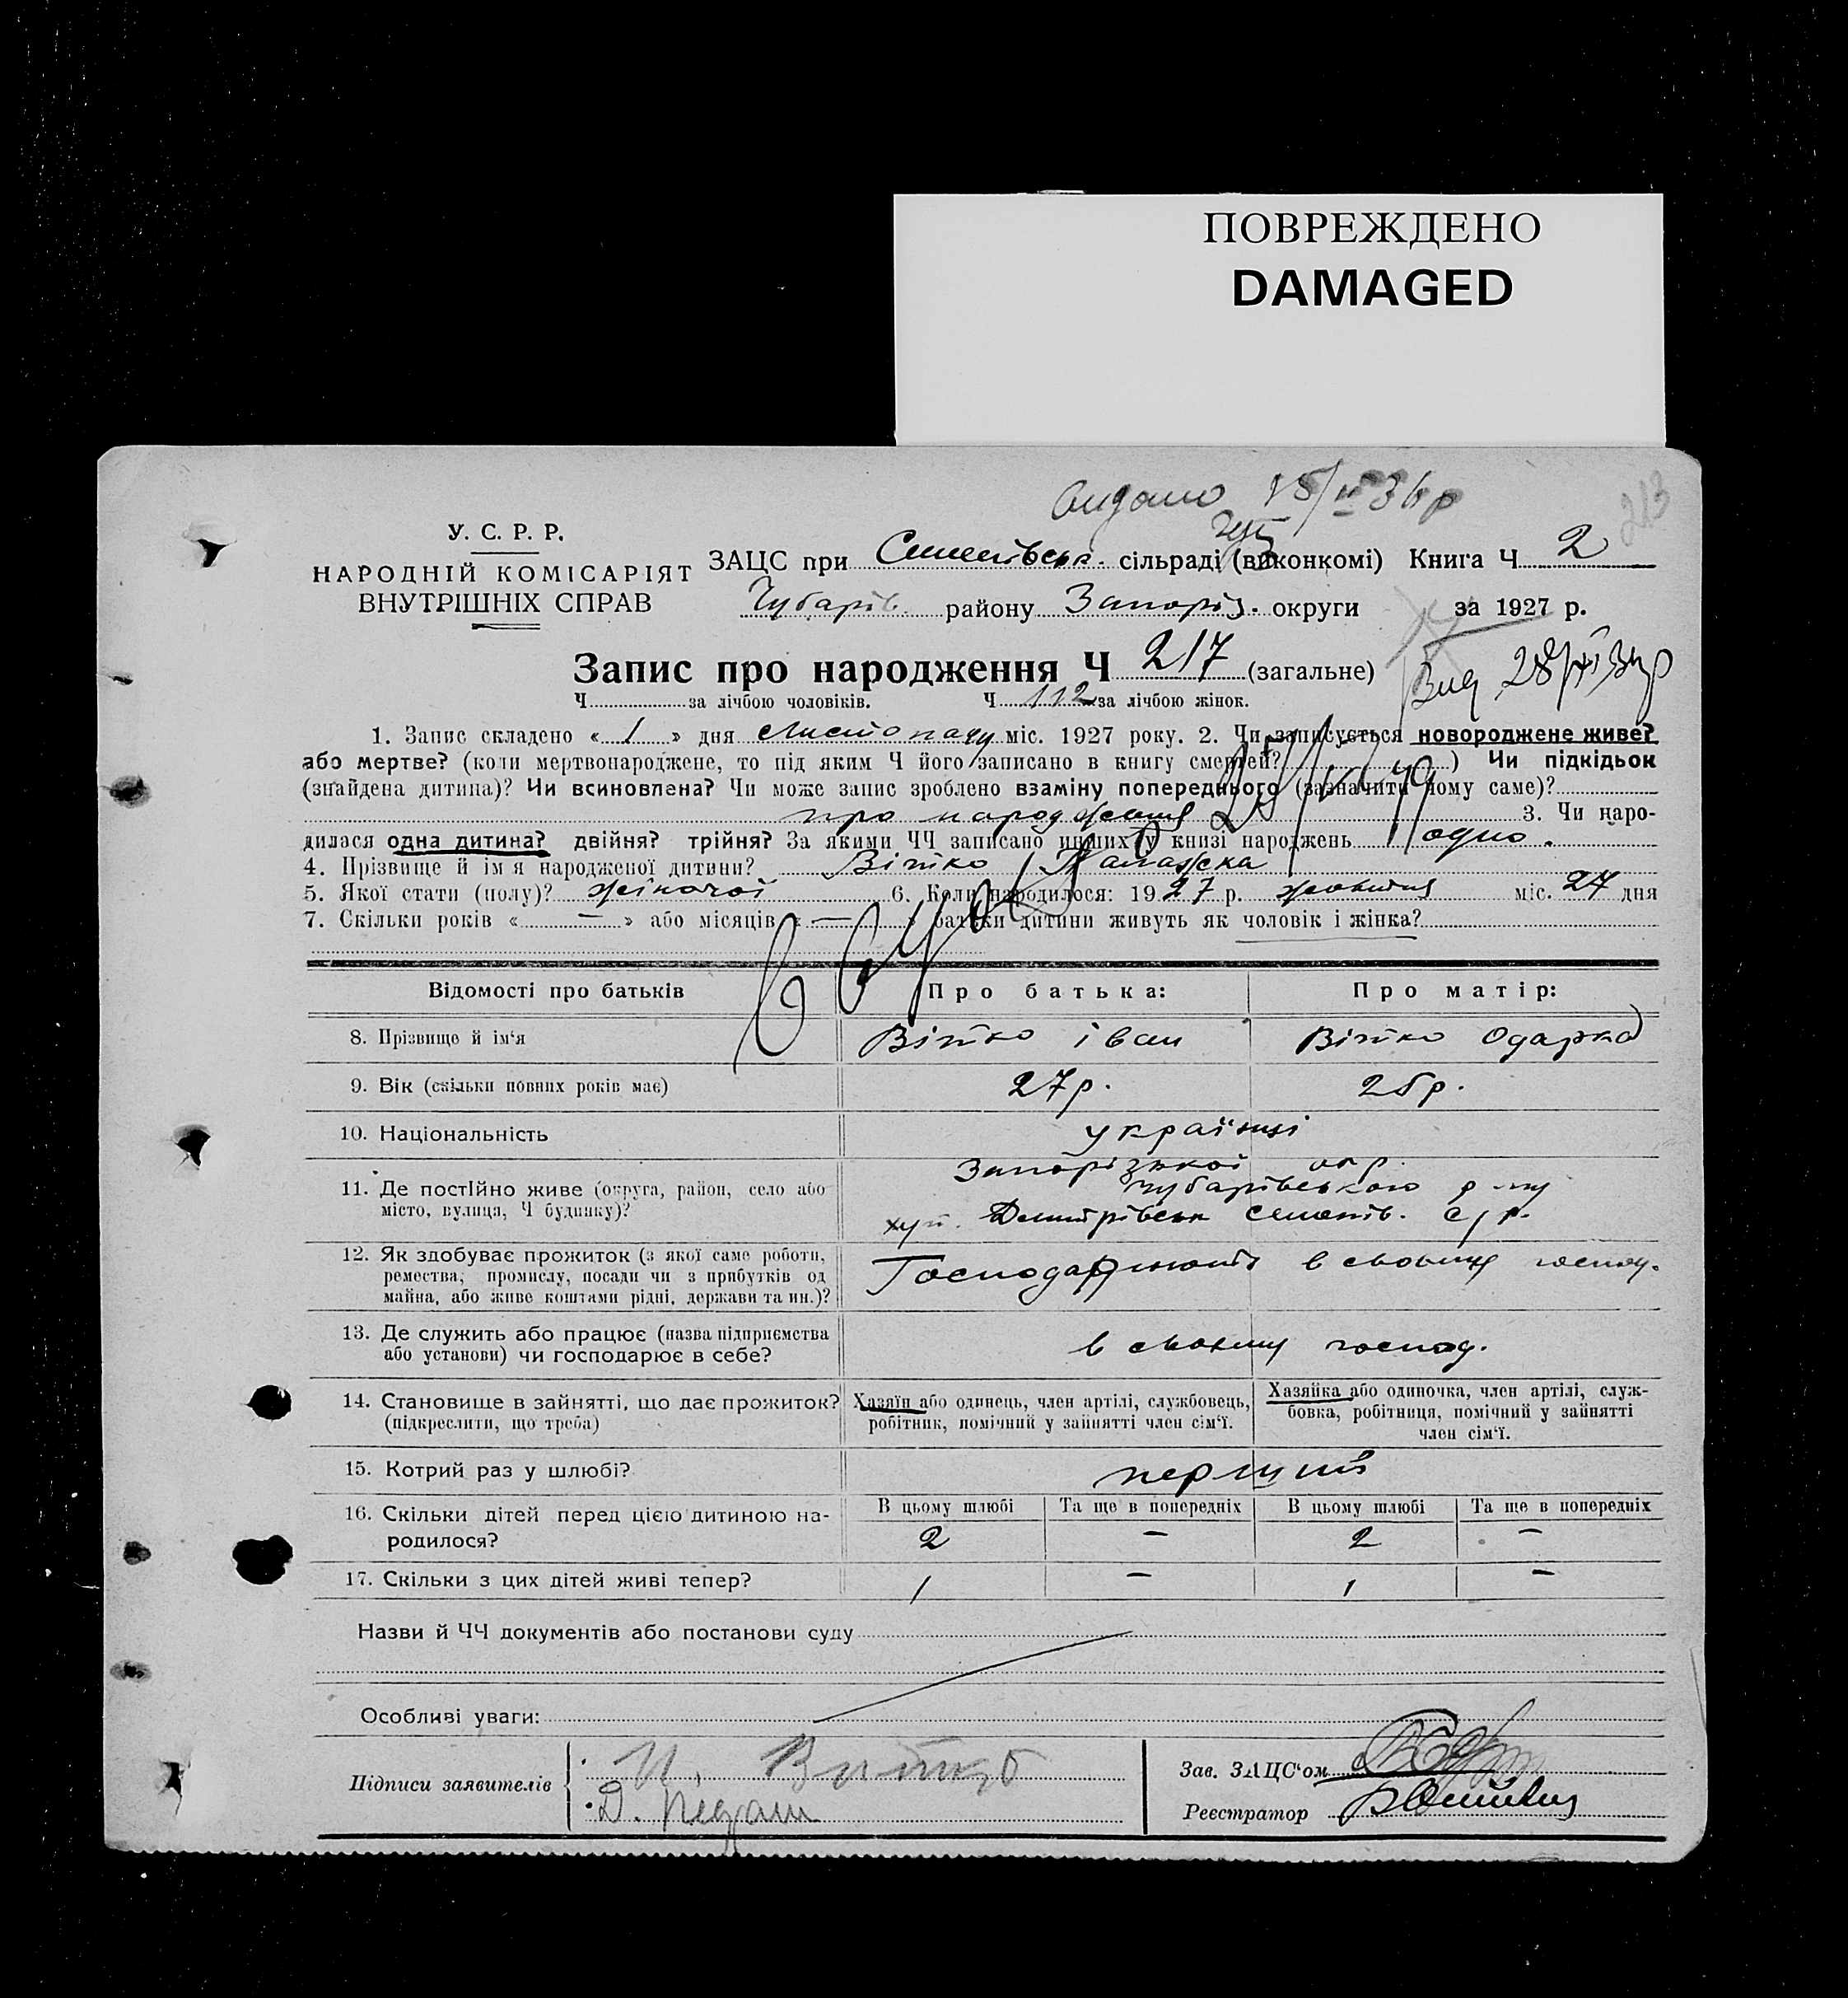 ПОВРЕЖДЕНО
DAMAGED
видано 15/II 36 р
213
У. С. Р. Р.
НАРОДНІЙ КОМІСАРІЯТ
ВНУТРІШНІХ СПРАВ
ЗАЦС при Семенівськ. сільраді (виконкомі) Книга Ч 2
Чубарів. району Запоріз. округи за 1927 р.
Запис про народження Ч 217 (загальне)
Вид 28/XI 34 р
Ч за лічбою чоловіків. Ч 112 за лічбою жінок.
1. Запис складено « 1 » дня Листопаду міс. 1927 року. 2. Чи записується новороджене живе?
або мертве? (коли мертвонароджене, то під яким Ч його записано в книгу смертей? ) Чи підкідьок
(знайдена дитина)? Чи всиновлена? Чи може запис зроблено взаміну попереднього (зазначити чому саме)?
про народження 3. Чи наро-
дилася одна дитина? двійня? трійня? За якими ЧЧ записано инших у книзі народжень одно.
4. Прізвище й ім'я народженої дитини? Вітко Палажка
5. Якої стати (полу)? жіночої 6. Коли народилося: 1927 р. жовтня міс. 27 дня
7. Скільки років « — » або місяців « — » батьки дитини живуть як чоловік і жінка?
Відомості про батьків Про батька: Про матір:
8. Прізвище й ім'я Вітко Іван Вітко Одарка
9. Вік (скільки повних років має) 27 р. 25 р.
10. Національність українці
11. Де постійно живе (округа, район, село або місто, вулиця, Ч будинку)?
Запорізької окр.
Чубарівського р-ну
хут. Дмитрівськ Семенів. с/р.
12. Як здобуває прожиток (з якої саме роботи,
ремества, промислу, посади чи з прибутків од
майна, або живе коштами рідні, держави та ин.)?
Господарюють в своєму господ.
13. Де служить або працює (назва підприємства
або установи) чи господарює в себе?
в своєму господ.
14. Становище в зайнятті, що дає прожиток?
(підкреслити, що треба)
Хазяїн або одинець, член артілі, службовець,
робітник, помічний у зайнятті член сім'ї.
Хазяйка або одиночка, член артілі, служ-
бовка, робітниця, помічний у зайнятті
член сім'ї.
15. Котрий раз у шлюбі? перший
16. Скільки дітей перед цією дитиною на-
родилося?
В цьому шлюбі Та ще в попередніх В цьому шлюбі Та ще в попередніх
2 — 2 —
17. Скільки з цих дітей живі тепер? 1 — 1 —
Назви й ЧЧ документів або постанови суду
Особливі уваги:
Підписи заявителів
И. Витко
Д. Педаш
Зав. ЗАЦС'ом
Реєстратор